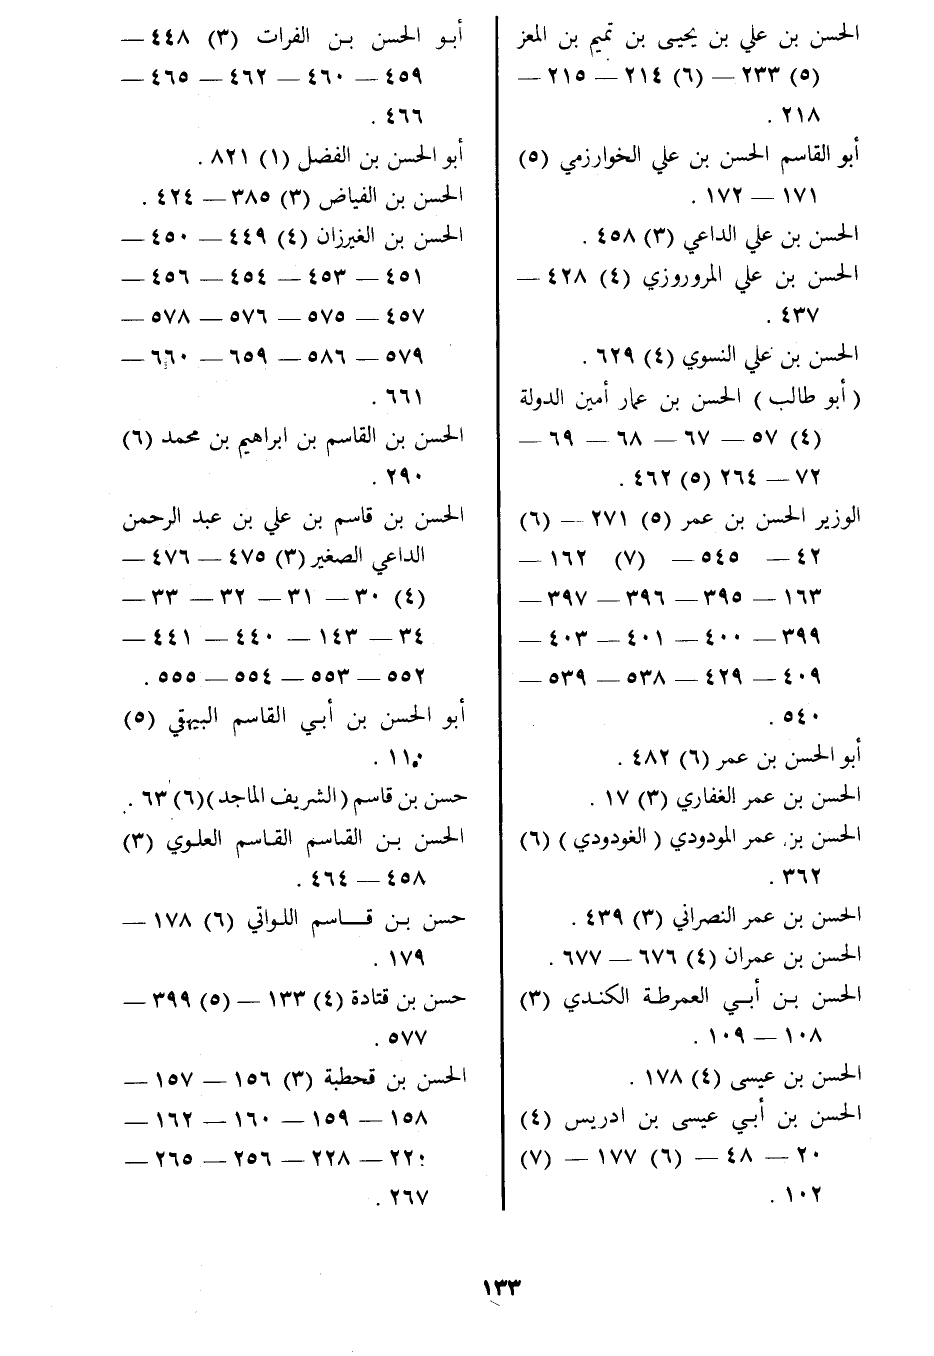 الحسن بن علي بن يحيى بن تميم بن المعز
(٥) ٢٣٣ — (٦) ٢١٤ — ٢١٥ —
٢١٨ .
أبو القاسم الحسن بن علي الخوارزمي (٥)
١٧١ — ١٧٢ .
الحسن بن علي الداعي (٣) ٤٥٨ .
الحسن بن علي المروروزي (٤) ٤٢٨ —
٤٣٧ .
الحسن بن علي النسوي (٤) ٦٢٩ .
( أبو طالب ) الحسن بن عمار أمين الدولة
(٤) ٥٧ — ٦٧ — ٦٨ — ٦٩ —
٧٢ — ٢٦٤ (٥) ٤٦٢ .
الوزير الحسن بن عمر (٥) ٢٧١ — (٦)
٤٢ — ٥٤٥ — (٧) ١٦٢ —
١٦٣ — ٣٩٥ — ٣٩٦ — ٣٩٧ —
٣٩٩ — ٤٠٠ — ٤٠١ — ٤٠٣ —
٤٠٩ — ٤٢٩ — ٥٣٨ — ٥٣٩ —
٥٤٠ .
أبو الحسن بن عمر (٦) ٤٨٢ .
الحسن بن عمر الغفاري (٣) ١٧ .
الحسن بن عمر المودودي ( الغودودي ) (٦)
٣٦٢ .
الحسن بن عمر النصراني (٣) ٤٣٩ .
الحسن بن عمران (٤) ٦٧٦ — ٦٧٧ .
الحسن بن أبي العمرطة الكندي (٣)
١٠٨ — ١٠٩ .
الحسن بن عيسى (٤) ١٧٨ .
الحسن بن أبي عيسى بن ادريس (٤)
٢٠ — ٤٨ — (٦) ١٧٧ — (٧)
١٠٢ .
أبو الحسن بن الفرات (٣) ٤٤٨ —
٤٥٩ — ٤٦٠ — ٤٦٢ — ٤٦٥ —
٤٦٦ .
أبو الحسن بن الفضل (١) ٨٢١ .
الحسن بن الفياض (٣) ٣٨٥ — ٤٢٤ .
الحسن بن الغيرزان (٤) ٤٤٩ — ٤٥٠ —
٤٥١ — ٤٥٣ — ٤٥٤ — ٤٥٦ —
٤٥٧ — ٥٧٥ — ٥٧٦ — ٥٧٨ —
٥٧٩ — ٥٨٦ — ٦٥٩ — ٦٦٠ —
٦٦١ .
الحسن بن القاسم بن ابراهيم بن محمد (٦)
٢٩٠ .
الحسن بن قاسم بن علي بن عبد الرحمن
الداعي الصغير (٣) ٤٧٥ — ٤٧٦ —
(٤) ٣٠ — ٣١ — ٣٢ — ٣٣ —
٣٤ — ١٤٣ — ٤٤٠ — ٤٤١ —
٥٥٢ — ٥٥٣ — ٥٥٤ — ٥٥٥ .
أبو الحسن بن أبي القاسم البيهقي (٥)
١١٠ .
حسن بن قاسم (الشريف الماجد)(٦) ٦٣ .
الحسن بن القاسم القاسم العلوي (٣)
٤٥٨ — ٤٦٤ .
حسن بن قاسم اللواتي (٦) ١٧٨ —
١٧٩ .
حسن بن قتادة (٤) ١٣٣ — (٥) ٣٩٩ —
٥٧٧ .
الحسن بن قحطبة (٣) ١٥٦ — ١٥٧ —
١٥٨ — ١٥٩ — ١٦٠ — ١٦٢ —
٢٢٠ — ٢٢٨ — ٢٥٦ — ٢٦٥ —
٢٦٧ .
١٣٣